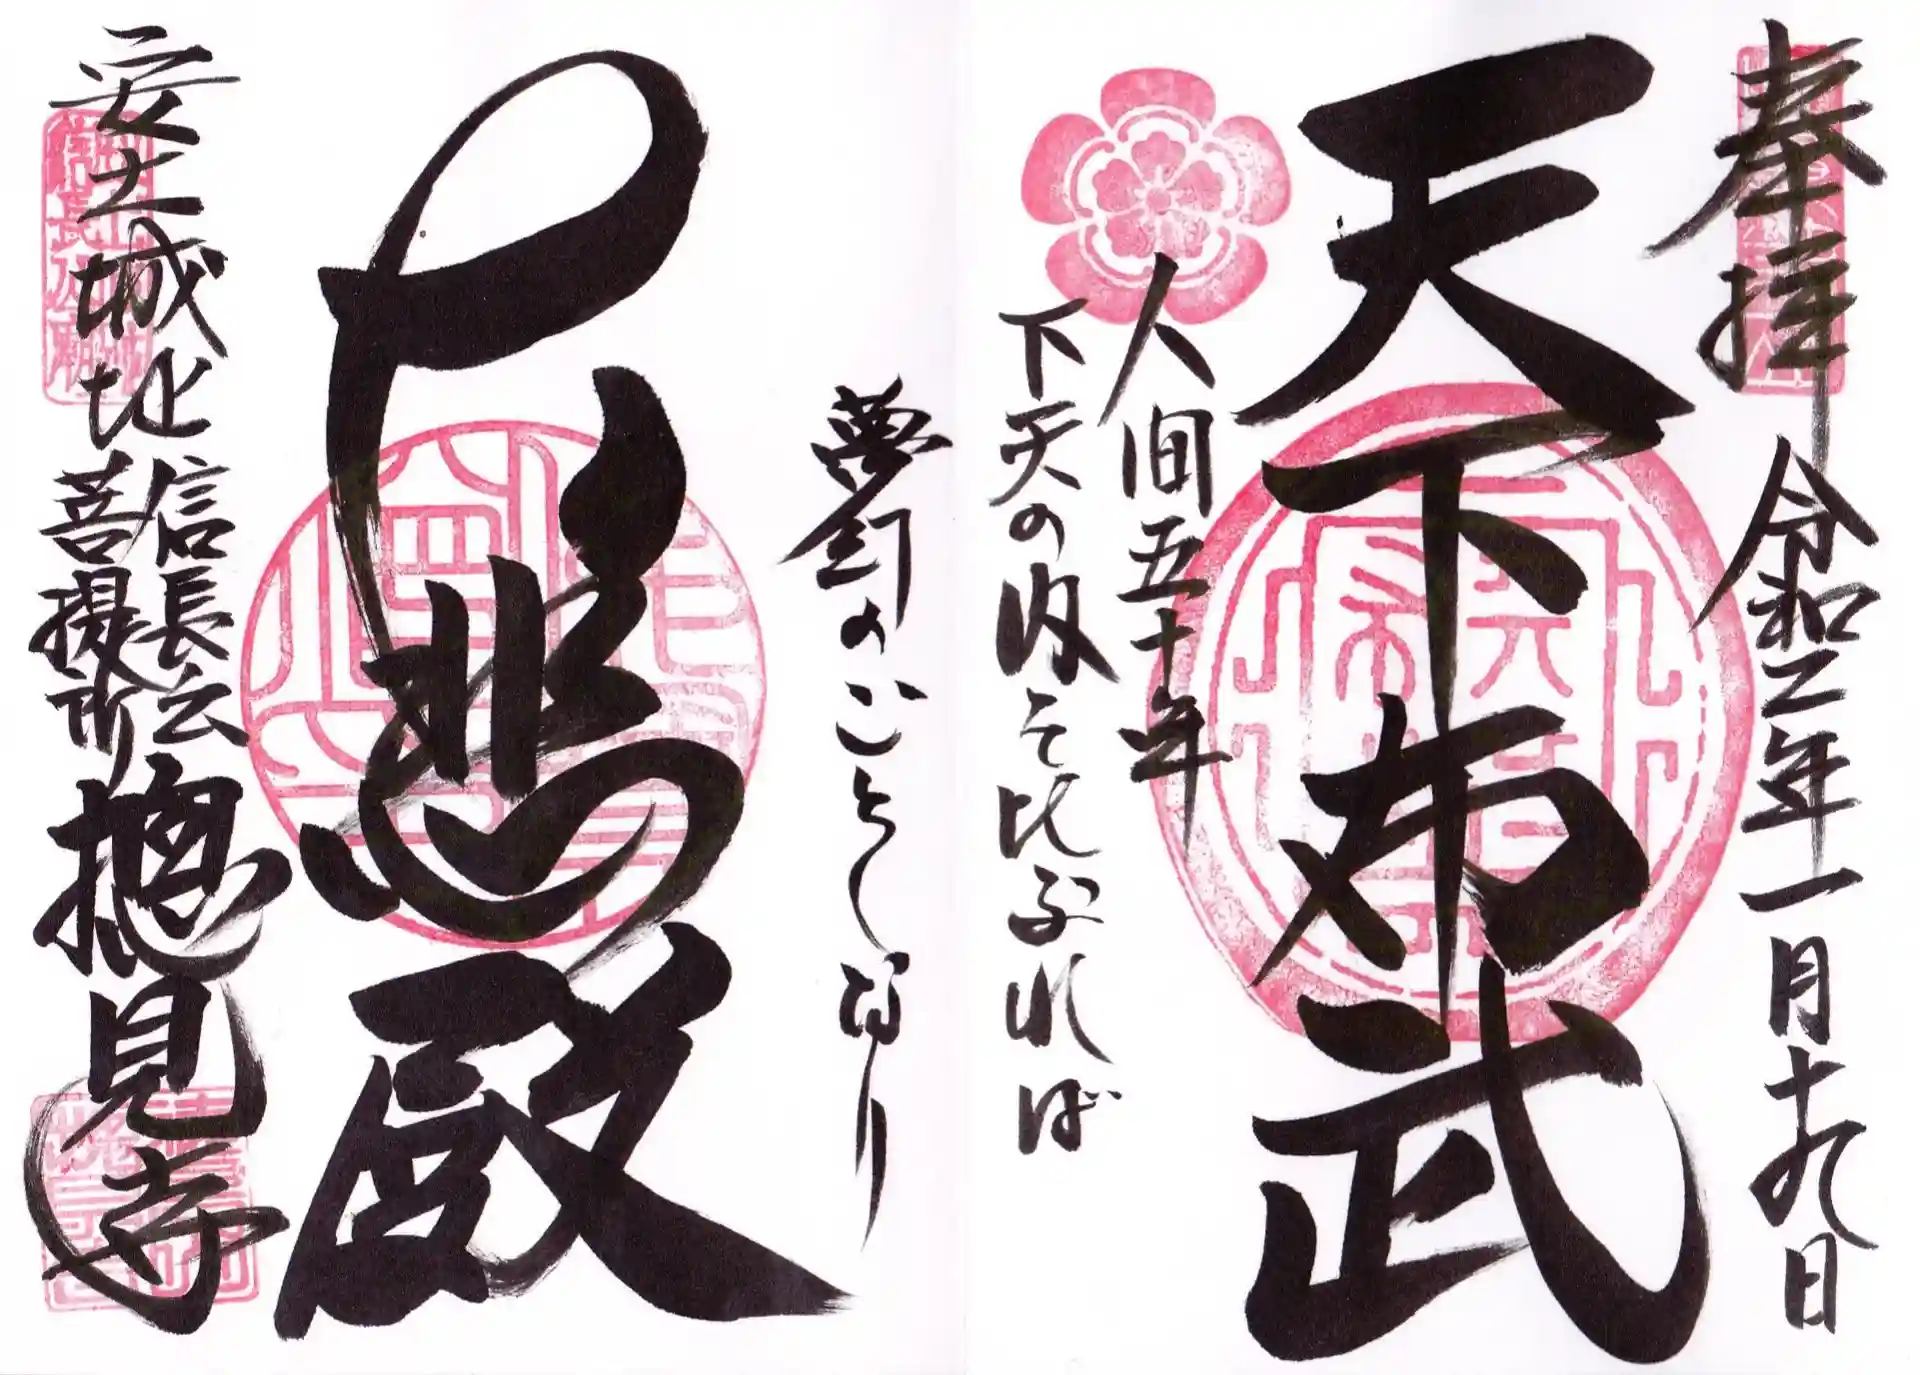 奉拝
令和二年一月十九日
天下布武
人間五十年
下天の内をくらぶれば
夢幻のごとくなり
大悲殿
安土城址
信長公
菩提所
摠見寺